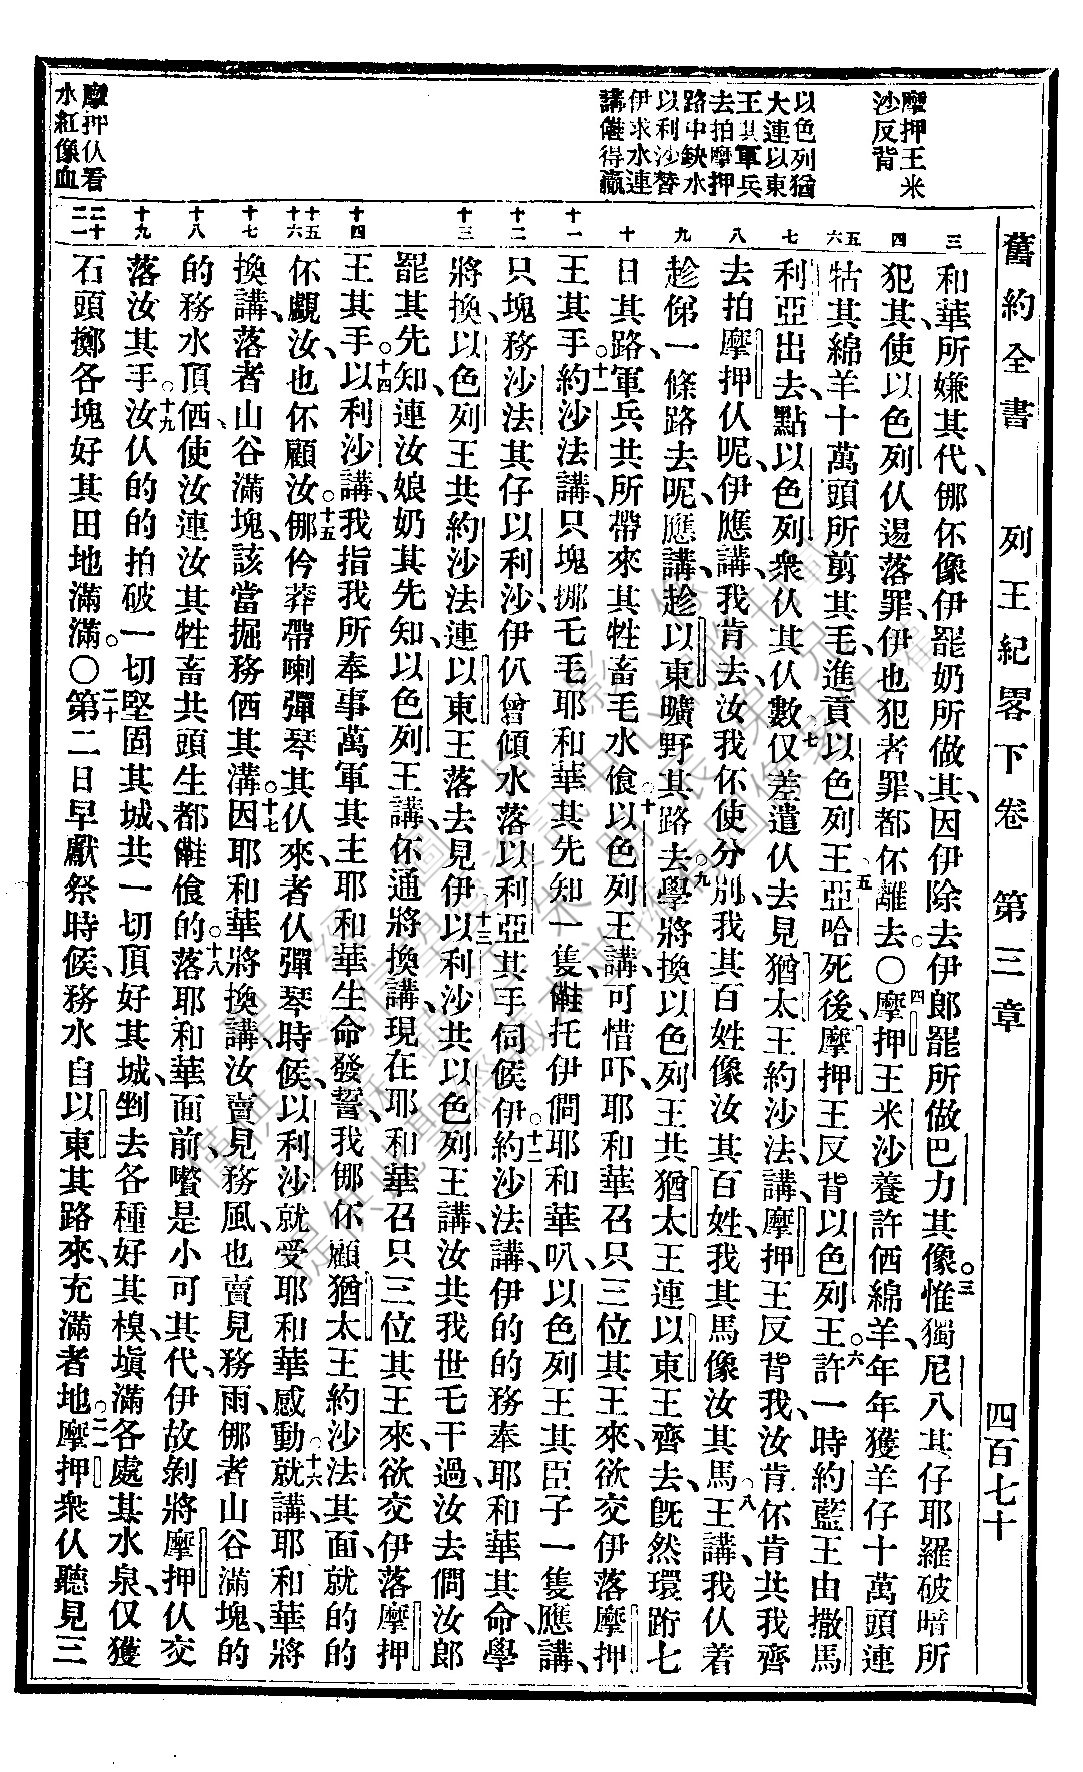 舊約全書　列王紀畧下卷　第三章　四百七十
摩押王米
沙反背
以色列猶
大連以東
王其軍兵
去拍摩押
路中缺水
以利沙替
伊求水連
講僅得贏
摩押仈看
水紅像血
三
四
五
六
七
八
九
十
十一
十二
十三
十四
十五
十六
十七
十八
十九
二十
二一
和華所嫌其代、㑚伓像伊罷奶所做其、因伊除去伊郎罷所做巴力其像。三惟獨尼八其仔耶羅破暗所
犯其、使以色列仈逿落罪、伊也犯者罪、都伓離去。〇四摩押王米沙養許価綿羊、年年獲羊仔十萬頭連
牯其綿羊十萬頭所剪其毛、進貢以色列王。五亞哈死後、摩押王反背以色列王。六許一時約藍王由撒馬
利亞出去、點以色列衆仈其仈數。七仅差遣仈去見猶太王約沙法講、摩押王反背我、汝肯伓肯共我齊
去拍摩押仈呢、伊應講、我肯去、汝我伓使分別、我其百姓像汝其百姓、我其馬像汝其馬。八王講、我仈着
趁㑚一條路去呢、應講、趁以東曠野其路去。九學將換以色列王共猶太王連以東王齊去、旣然環跻七
日其路、軍兵共所帶來其牲畜毛水飧。十以色列王講、可惜吓、耶和華召只三位其王來、欲交伊落摩押
王其手。十一約沙法講、只塊挪乇毛耶和華其先知一隻、㑲托伊僩耶和華叭、以色列王其臣子一隻應講、
只塊務沙法其仔以利沙、伊仈曾傾水落以利亞其手伺候伊。十二約沙法講、伊的的務奉耶和華其命、學
將換、以色列王共約沙法連以東王落去見伊。十三以利沙共以色列王講、汝共我世乇干過、汝去僩汝郎
罷其先知、連汝娘奶其先知、以色列王講、伓通將換講、現在耶和華召只三位其王來、欲交伊落摩押
王其手。十四以利沙講、我指我所奉事萬軍其主耶和華生命發誓、我㑚伓顧猶太王約沙法其面、就的的
伓覷汝、也伓顧汝。十五㑚伶莽帶喇彈琴其仈來、者仈彈琴時候、以利沙就受耶和華感動。十六就講、耶和華將
換講、落者山谷滿塊、該當掘務価其溝。十七因耶和華將換講、汝賣見務風、也賣見務雨、㑚者山谷滿塊、的
的務水頂価、使汝連汝其牲畜共頭生都㑲飧的。十八落耶和華面前、嚽是小可其代、伊故剝將摩押仈交
落汝其手。十九汝仈的的拍破一切堅固其城、共一切頂好其城、剉去各種好其樹、塡滿各處其水泉、仅獲
石頭擲各塊好其田地滿滿。〇二十第二日早獻祭時候、務水自以東其路來、充滿者地。二一摩押衆仈聽見三